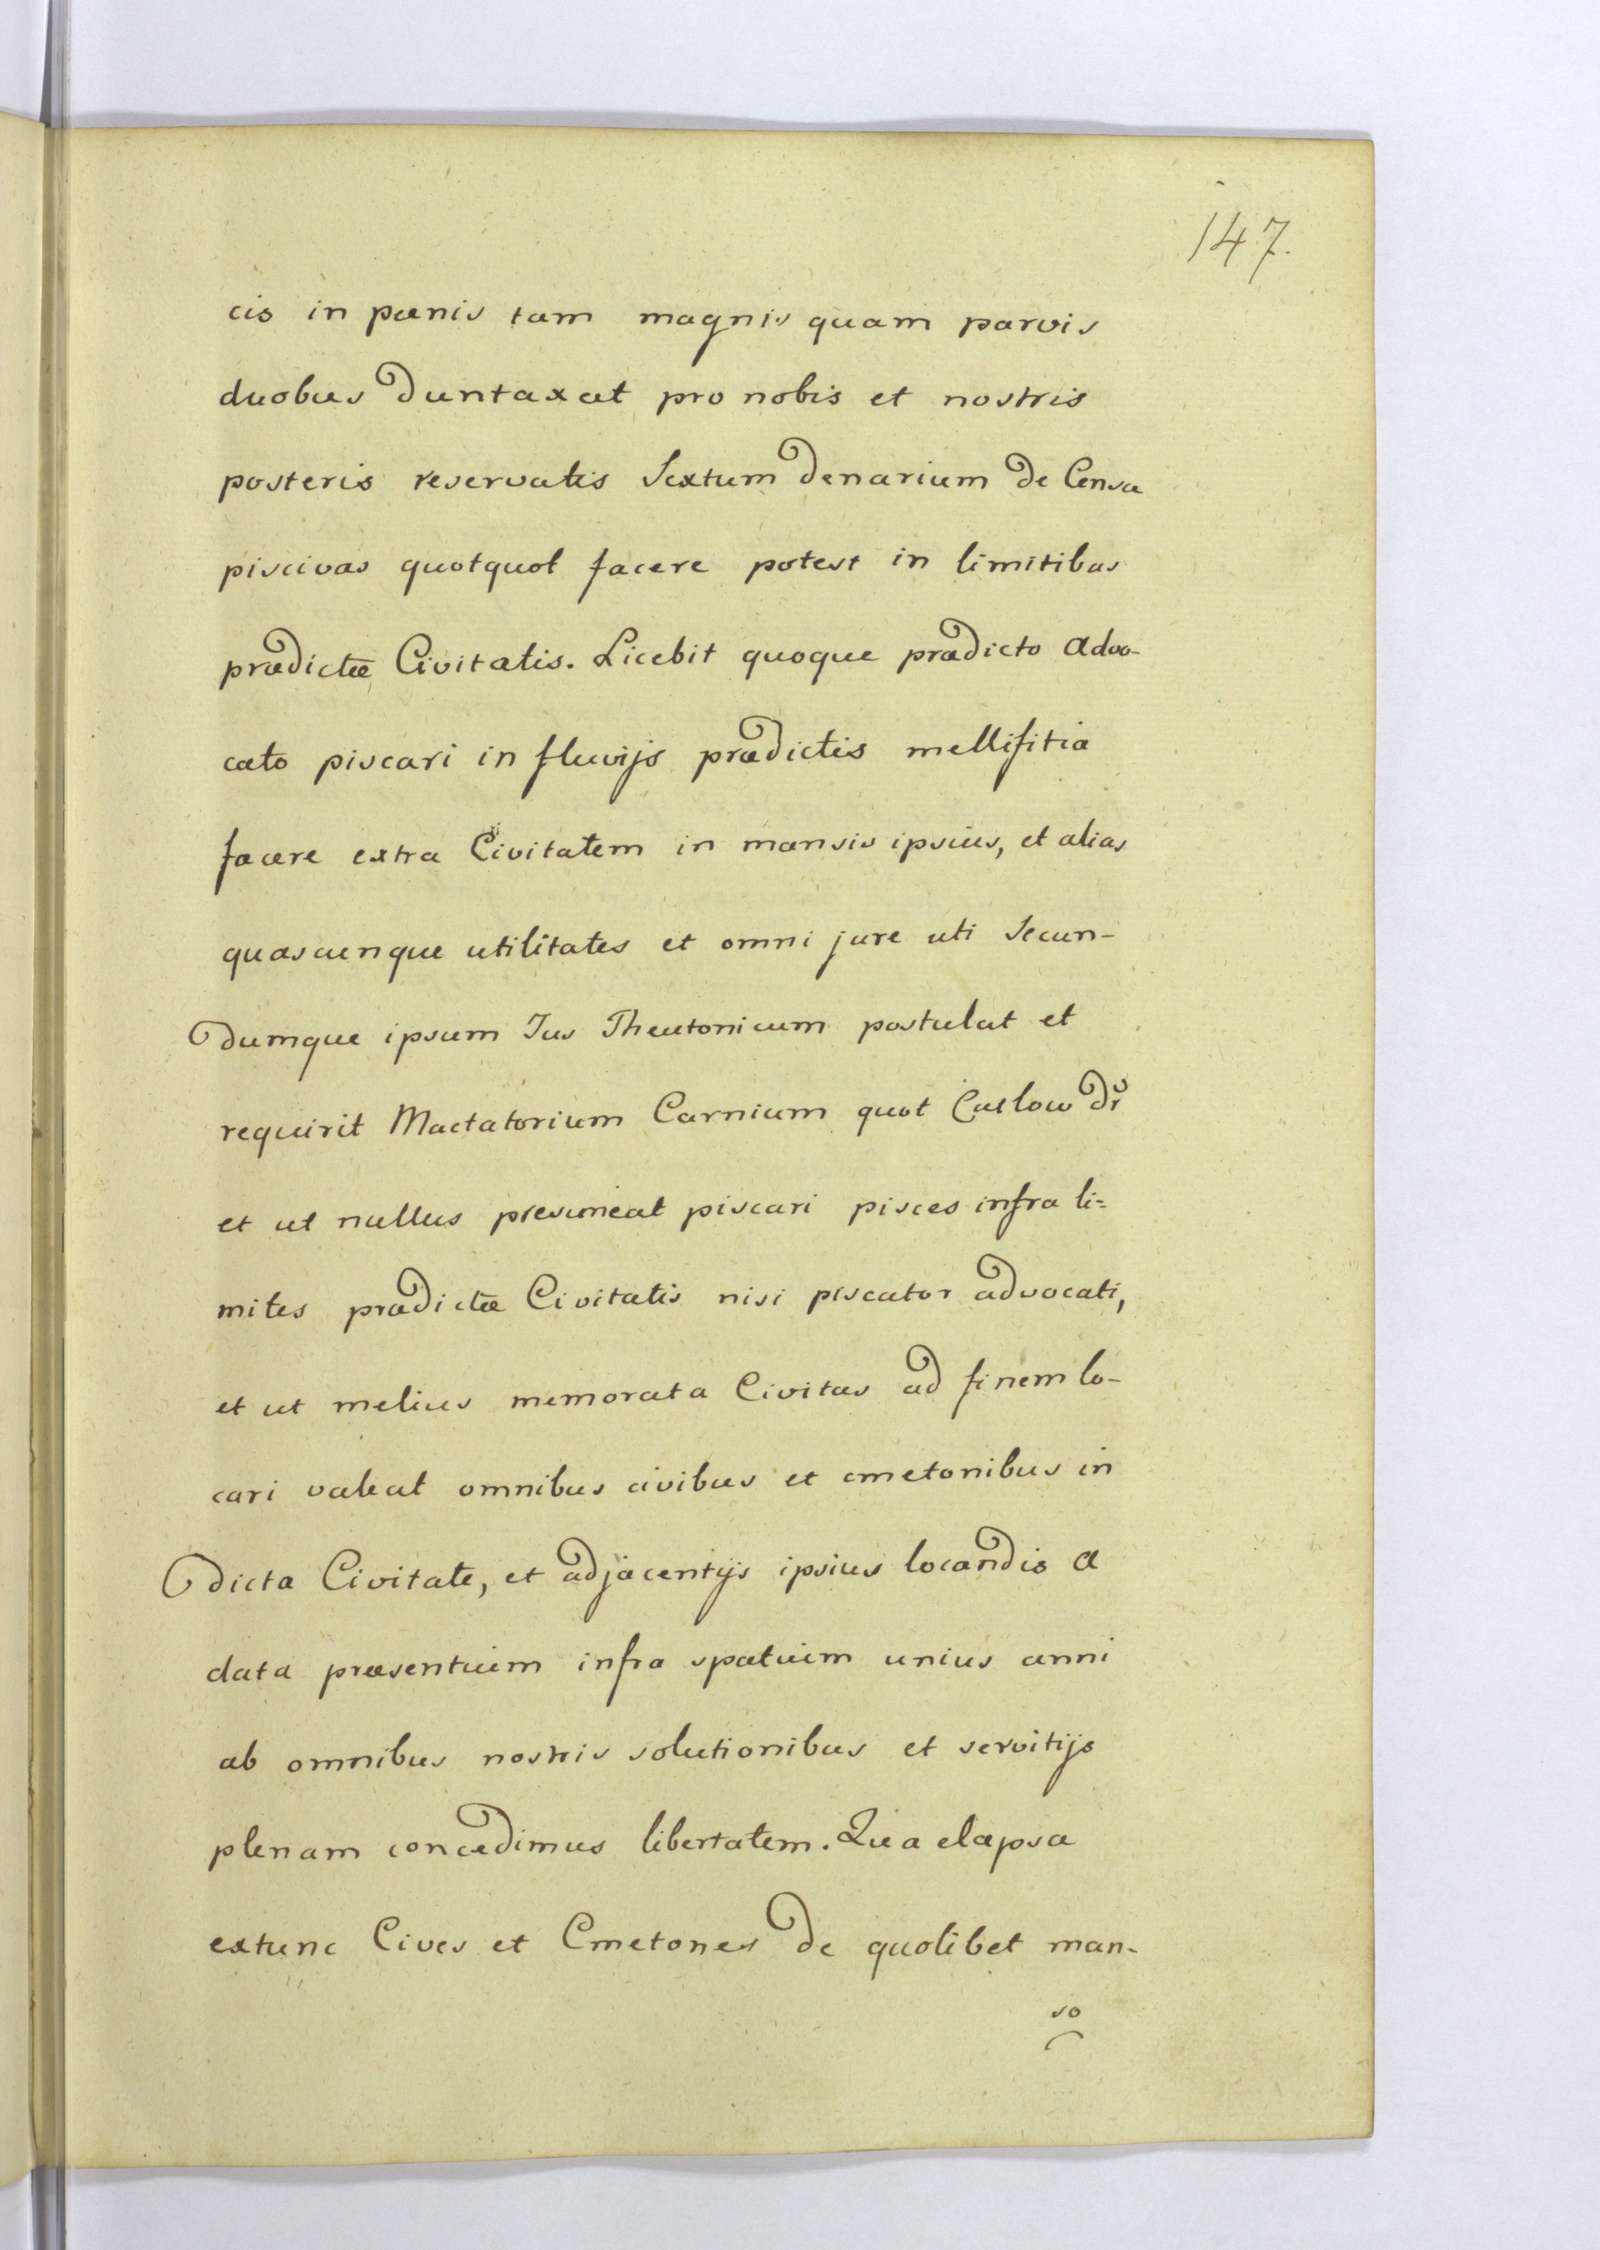 147.
cis in pænis tam magnis quam parvis
duobus duntaxat pro nobis et nostris
posteris reservatis Sextum denarium de Censu
piscivas quotquot facere potest in limitibus
prædictæ Civitatis. Licebit quoque prædicto Advo-
cato piscari in fluvijs prædictis mellifitia
facere extra Civitatem in mansis ipsius, et alias
quascunque utilitates et omni jure uti Secun-
dumque ipsum Jus Theutonicum postulat et
requirit Mactatorium Carnium quot Cutlow dr
et ut nullus presumeat piscari pisces infra li-
mites prædictæ Civitatis nisi piscator advocati,
et ut melius memorata Civitas ad finem lo-
cari valeat omnibus civibus et cmetonibus in
dicta Civitate, et adjacentijs ipsius locandis a
data præsentium infra spatium unius anni
ab omnibus nostris solutionibus et servitijs
plenam concedimus libertatem. Qua elapsa
extunc Cives et Cmetones de quolibet man-
so